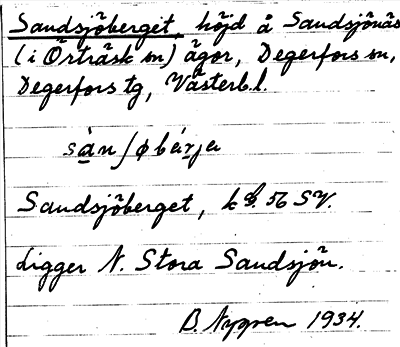 Sandsjöberget, höjd å Sandsjönäs
(i Örträsk sn) ägor, Degerfors sn,
Degerfors tg, Västerb. l.
sànʃøbárja
Sandsjöberget, k 56 SV.
Ligger N. Stora Sandsjön.
B. Nygren 1934.